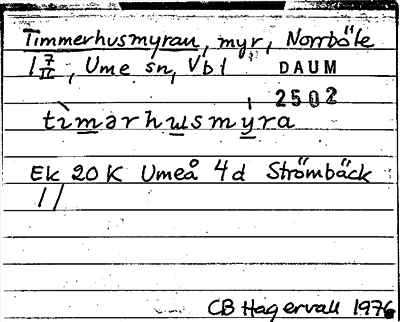 Timmerhusmyran, myr, Norrböle
1 7/II, Ume sn, Vbl
DAUM
2502
tìmərhusmýra
Ek 20 K Umeå 4d Strömbäck
11
CB Hagervall 1976